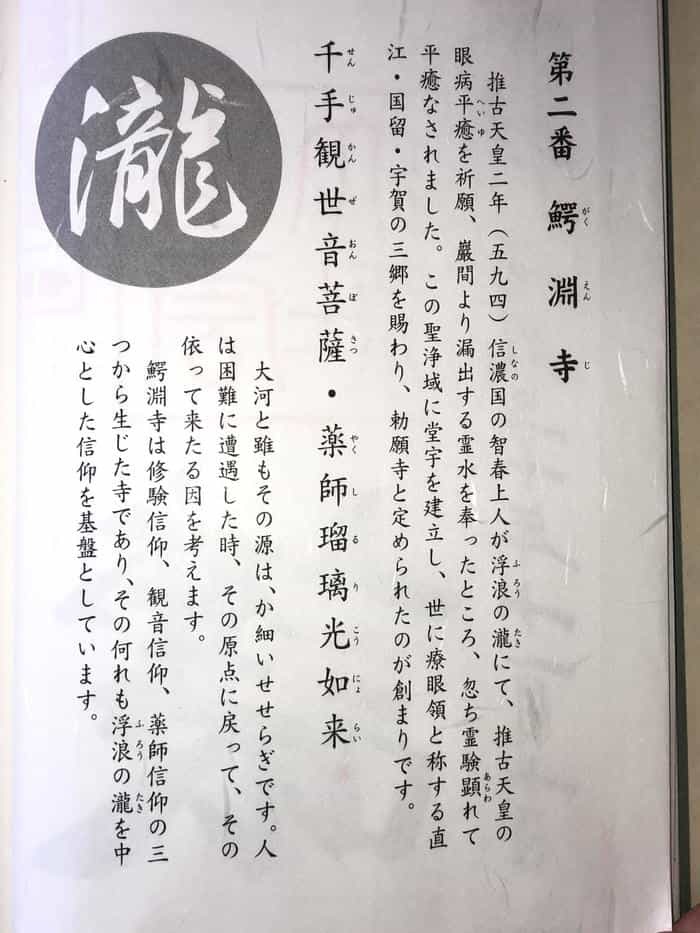 第二番　鰐淵寺
がくえんじ
推古天皇二年（五九四）信濃国の智春上人が浮浪の瀧にて、推古天皇の
しなの
ふろう
たき
眼病平癒を祈願、巌間より漏出する霊水を奉ったところ、忽ち霊験顕れて
へいゆ
あらわ
平癒なされました。この聖浄域に堂宇を建立し、世に療眼領と称する直
江・国留・宇賀の三郷を賜わり、勅願寺と定められたのが創まりです。
千手観世音菩薩・薬師瑠璃光如来
せんじゅかんぜおんぼさつ
やくしるりこうにょらい
瀧
大河と雖もその源は、か細いせせらぎです。人
は困難に遭遇した時、その原点に戻って、その
依って来たる因を考えます。
鰐淵寺は修験信仰、観音信仰、薬師信仰の三
つから生じた寺であり、その何れも浮浪の瀧を中
ふろう
たき
心とした信仰を基盤としています。